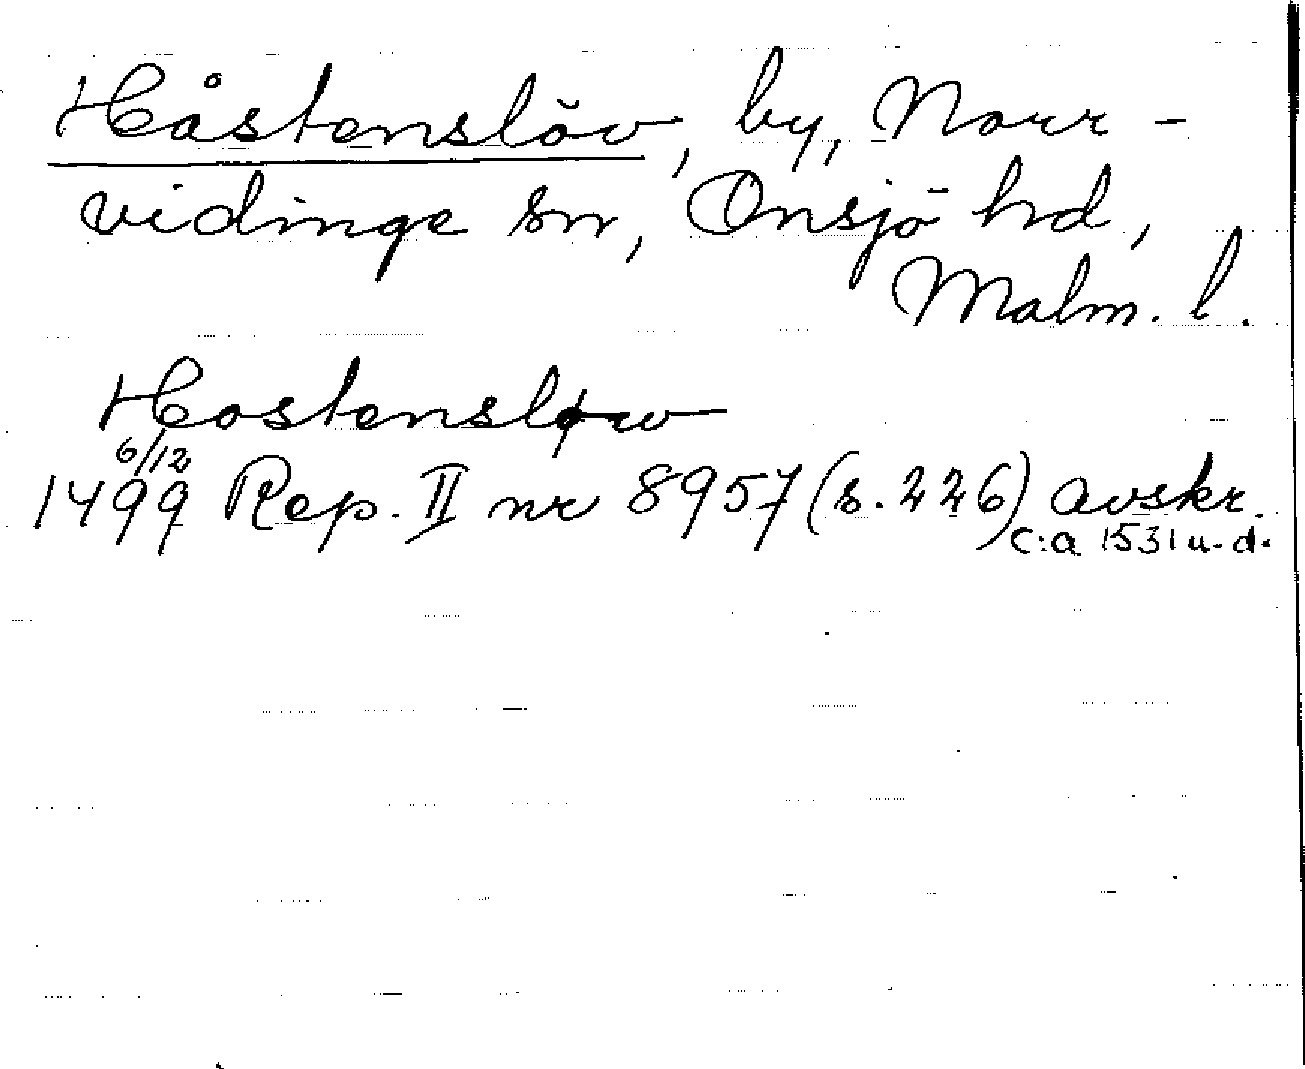 Håstenslöv, by, Norr-
vidinge sn, Onsjö hd,
Malm. l.
Hostensløw
6/12
1499 Rep. II nr 8957 (s. 226) avskr.
c:a 1531 u. d.